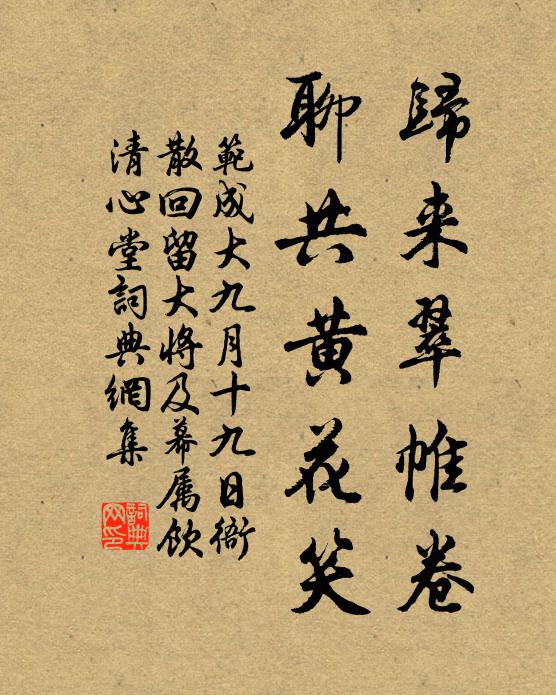 歸来翠帷卷
聊共黄花笑
範成大九月十九日衙
散回留大將及幕属飲
清心堂詞典網集
詞典
网印